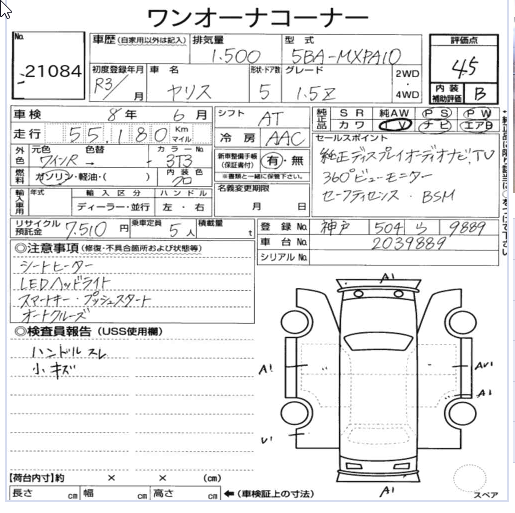 ワンオーナーコーナー
No. 21084
車歴 (自家用以外は記入) 排気量 1.500 型式 5BA-MXPA10
評価点 4.5
初度登録年月 R3/ 月 車名 ヤリス 形状・ドア数 5 グレード 1.5Z 2WD・4WD
内装補助評価 B
車検 8年 6月 シフト AT
純正品 SR 純AW PS PW カワ ナビ エアB
走行 55,180 Km マイル 冷房 AAC
セールスポイント
外色 元色 ワインR 色替 → カラーNo. 3T3
新車整備手帳(保証書付) 有・無
※書類と一緒に保管下さい。
純正ディスプレイオーディオナビ,TV
燃料 ガソリン・軽油・( ) 内装色 クロ
360°ビューモニター
輸入車用 年式 輸入区分 ハンドル
名義変更期限
セーフティセンス・BSM
ディーラー・並行 左・右
月 日
リサイクル預託金 7,510円 乗車定員 5人 積載量 t
登録No. 神戸 504 ら 9889
車台No. 2039889
シリアルNo.
◎注意事項 (修復・不具合箇所および状態等)
シートヒーター
LEDヘッドライト
スマートキー・プッシュスタート
オートクルーズ
◎検査員報告 (USS使用欄)
ハンドルスレ
小キズ
A1
A1
AU1
A1
U1
A1
【荷台内寸】約 × × (cm)
長さ cm 幅 cm 高さ cm ←(車検証上の寸法)
スペア